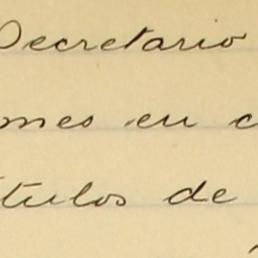 Secretario
ones en c
ítulos de